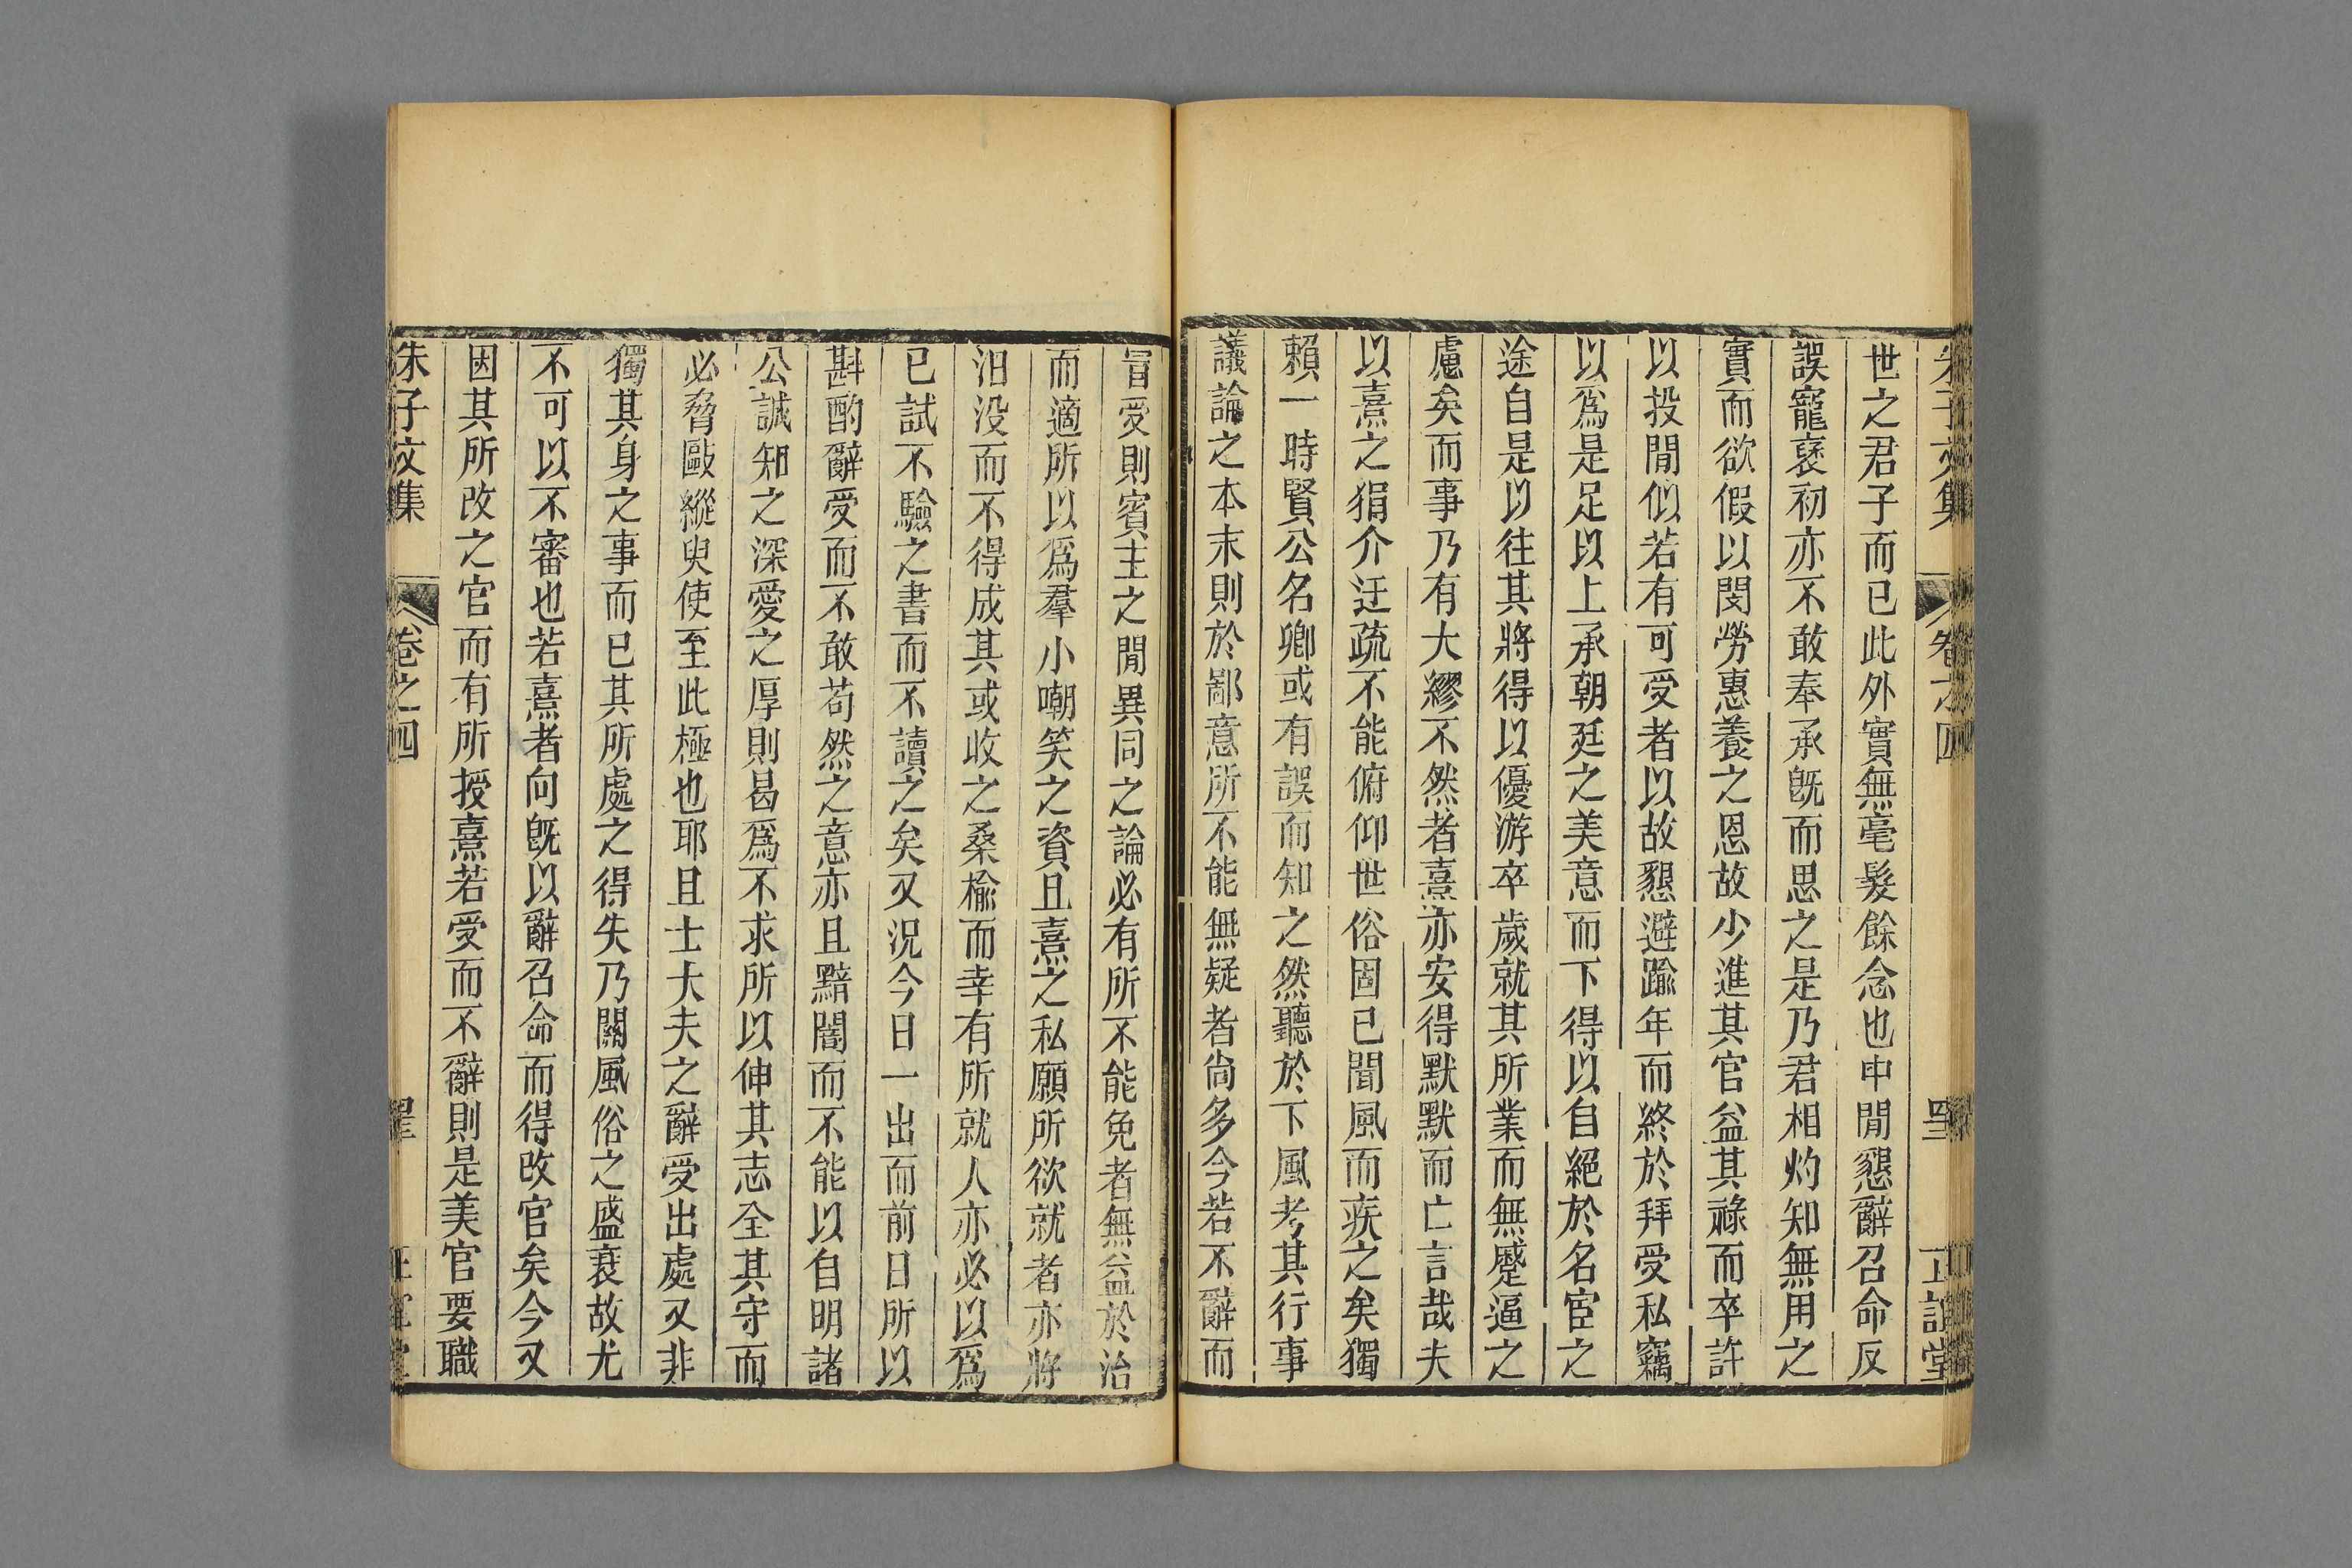 世之君子而已此外實無毫髮餘念也申閒懇辭召命反
誤寵褒初亦不敢奉承旣而思之是乃君相灼知無用之
實而欲假以閔勞惠養之恩故少進其官益其祿而卒許
以投閒似若有可受者以故懇避踰年而終於拜受私竊
以爲是足以上承朝廷之美意而下得以自絕於名宦之
途自是以往其將得以優游卒歲就其所業而無蹙逼之
慮矣而事乃有大繆不然者熹亦安得默默而亡言哉夫
以熹之狷介迂疏不能俯仰世俗固已聞風而疾之矣獨
賴一時賢公名卿或有誤而知之然聽於下風考其行事
議論之本末則於鄙意所不能無疑者尙多今若不辭而
冒受則賓主之閒異同之論必有所不能免者無益於治
而適所以爲羣小嘲笑之資且熹之私願所欲就者亦將
汨没而不得成其或收之桑榆而幸有所就人亦必以爲
已試不驗之書而不讀之矣又況今日一出而前日所以
斟酌辭受而不敢苟然之意亦且黯闇而不能以自明諸
公誠知之深愛之厚則曷爲不求所以伸其志全其守而
必脅敺縱臾使至此極也耶且士大夫之辭受出處又非
獨其身之事而已其所處之得失乃關風俗之盛衰故尤
不可以不審也若熹者向旣以辭召命而得改官矣今又
因其所改之官而有所授熹若受而不辭則是美官要職
朱子文集 卷之四